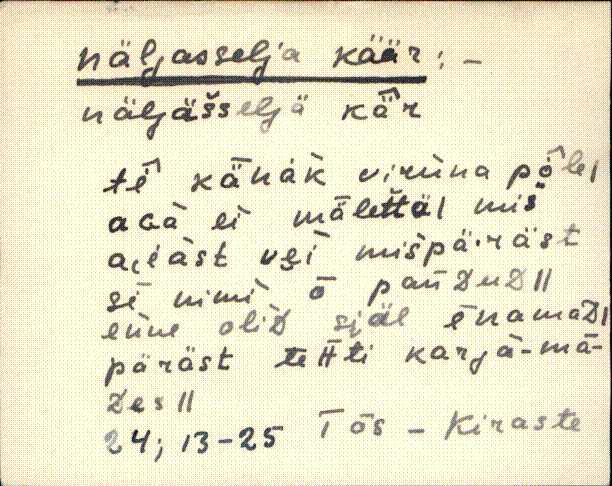 näljasselja käär: -
näljäšseljä kä̂r
tê känàk virùna pô̬leǀ
avà ei mälettäǀ mis
àst vei mispä·räst
sè nimì ō panDuDǁ
enne oliD själ ēnamaDǀ
päräst tetti karjà-mā-
Desǁ
24; 13-25 Tõs - Kiraste